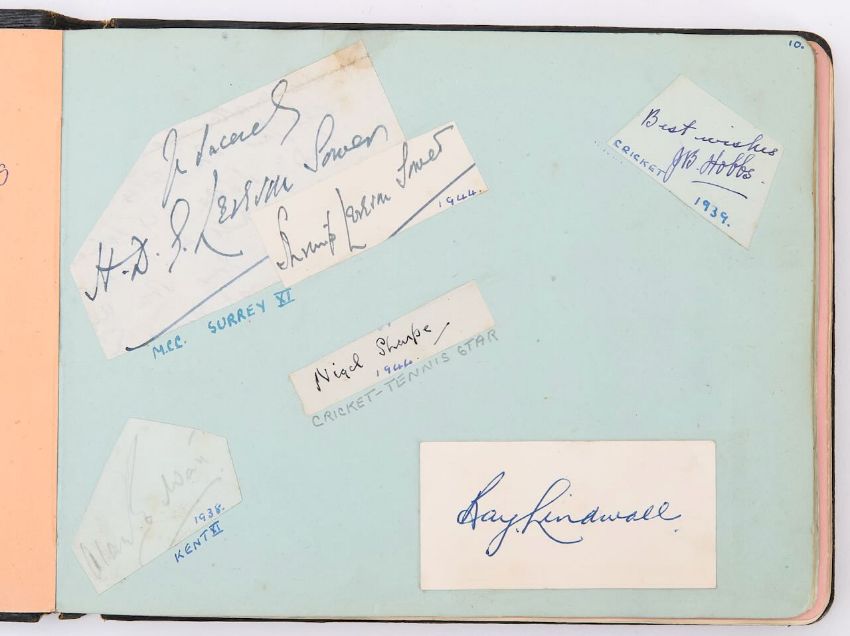 10.
H. D. G. Leveson Gower
Leveson Gower
1944.
M.C.C. SURREY XI
Best wishes
J B. Hobbs.
CRICKET
1939.
Nigel Sharpe
1944.
CRICKET-TENNIS STAR
1938.
KENT XI
Ray Lindwall.